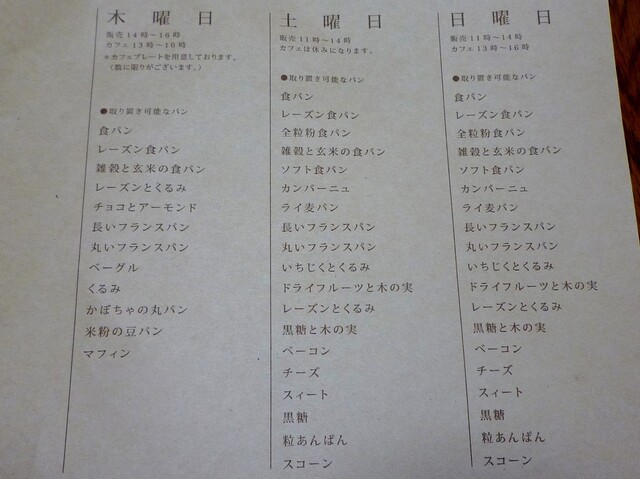 木曜日
販売14時～16時
カフェ13時～16時
＊カフェプレートを用意しております。
（数に限りがございます。）
●取り置き可能なパン
食パン
レーズン食パン
雑穀と玄米の食パン
レーズンとくるみ
チョコとアーモンド
長いフランスパン
丸いフランスパン
ベーグル
くるみ
かぼちゃの丸パン
米粉の豆パン
マフィン
土曜日
販売11時～14時
カフェは休みになります。
●取り置き可能なパン
食パン
レーズン食パン
全粒粉食パン
雑穀と玄米の食パン
ソフト食パン
カンパーニュ
ライ麦パン
長いフランスパン
丸いフランスパン
いちじくとくるみ
ドライフルーツと木の実
レーズンとくるみ
黒糖と木の実
ベーコン
チーズ
スィート
黒糖
粒あんぱん
スコーン
日曜日
販売11時～14時
カフェ13時～16時
●取り置き可能なパン
食パン
レーズン食パン
全粒粉食パン
雑穀と玄米の食パン
ソフト食パン
カンパーニュ
ライ麦パン
長いフランスパン
丸いフランスパン
いちじくとくるみ
ドライフルーツと木の実
レーズンとくるみ
黒糖と木の実
ベーコン
チーズ
スィート
黒糖
粒あんぱん
スコーン